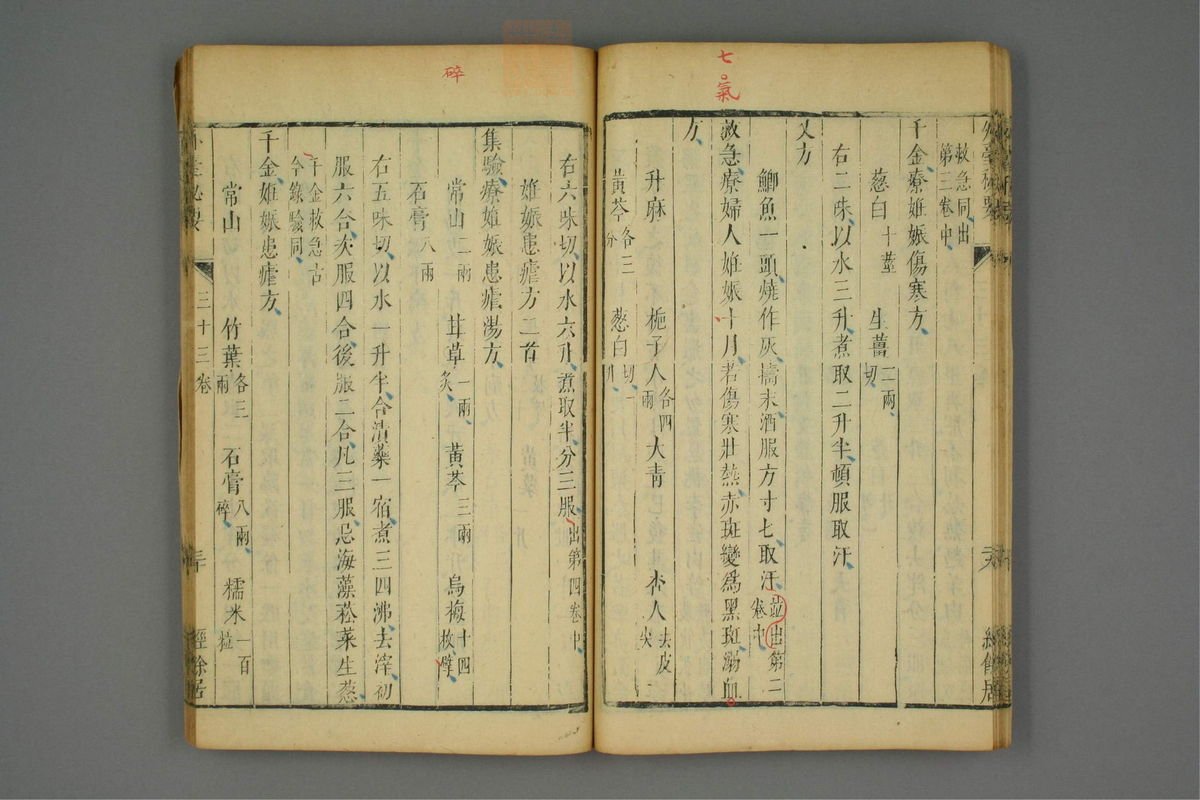 七氣
外臺秘要
經餘居
救急同出
第三卷中
千金療妊娠傷寒方
葱白十莖 生薑二兩切
右二味以水三升煮取二升半頓服取汗
又方
鯽魚一頭燒作灰擣末酒服方寸七取汗並出第二卷中
救急療婦人妊娠十月若傷寒壯熱赤斑變爲黑斑溺血
方
升麻 梔子人各四兩 大青 杏人去皮尖
黃芩各三分 葱白切一升
碎
右六味切以水六升煮取半分三服出第四卷中
妊娠患瘧方二首
集驗療妊娠患瘧湯方
常山二兩 甘草一兩炙 黃芩三兩 烏梅十四枚碎
石膏八兩
右五味切以水一升半合漬藥一宿煮三四沸去滓初
服六合次服四合後服二合凡三服忌海藻菘菜生葱
千金救急古
今錄驗同
千金妊娠患瘧方
常山 竹葉各三兩 石膏八兩碎 糯米一百粒
三十三卷
經餘居